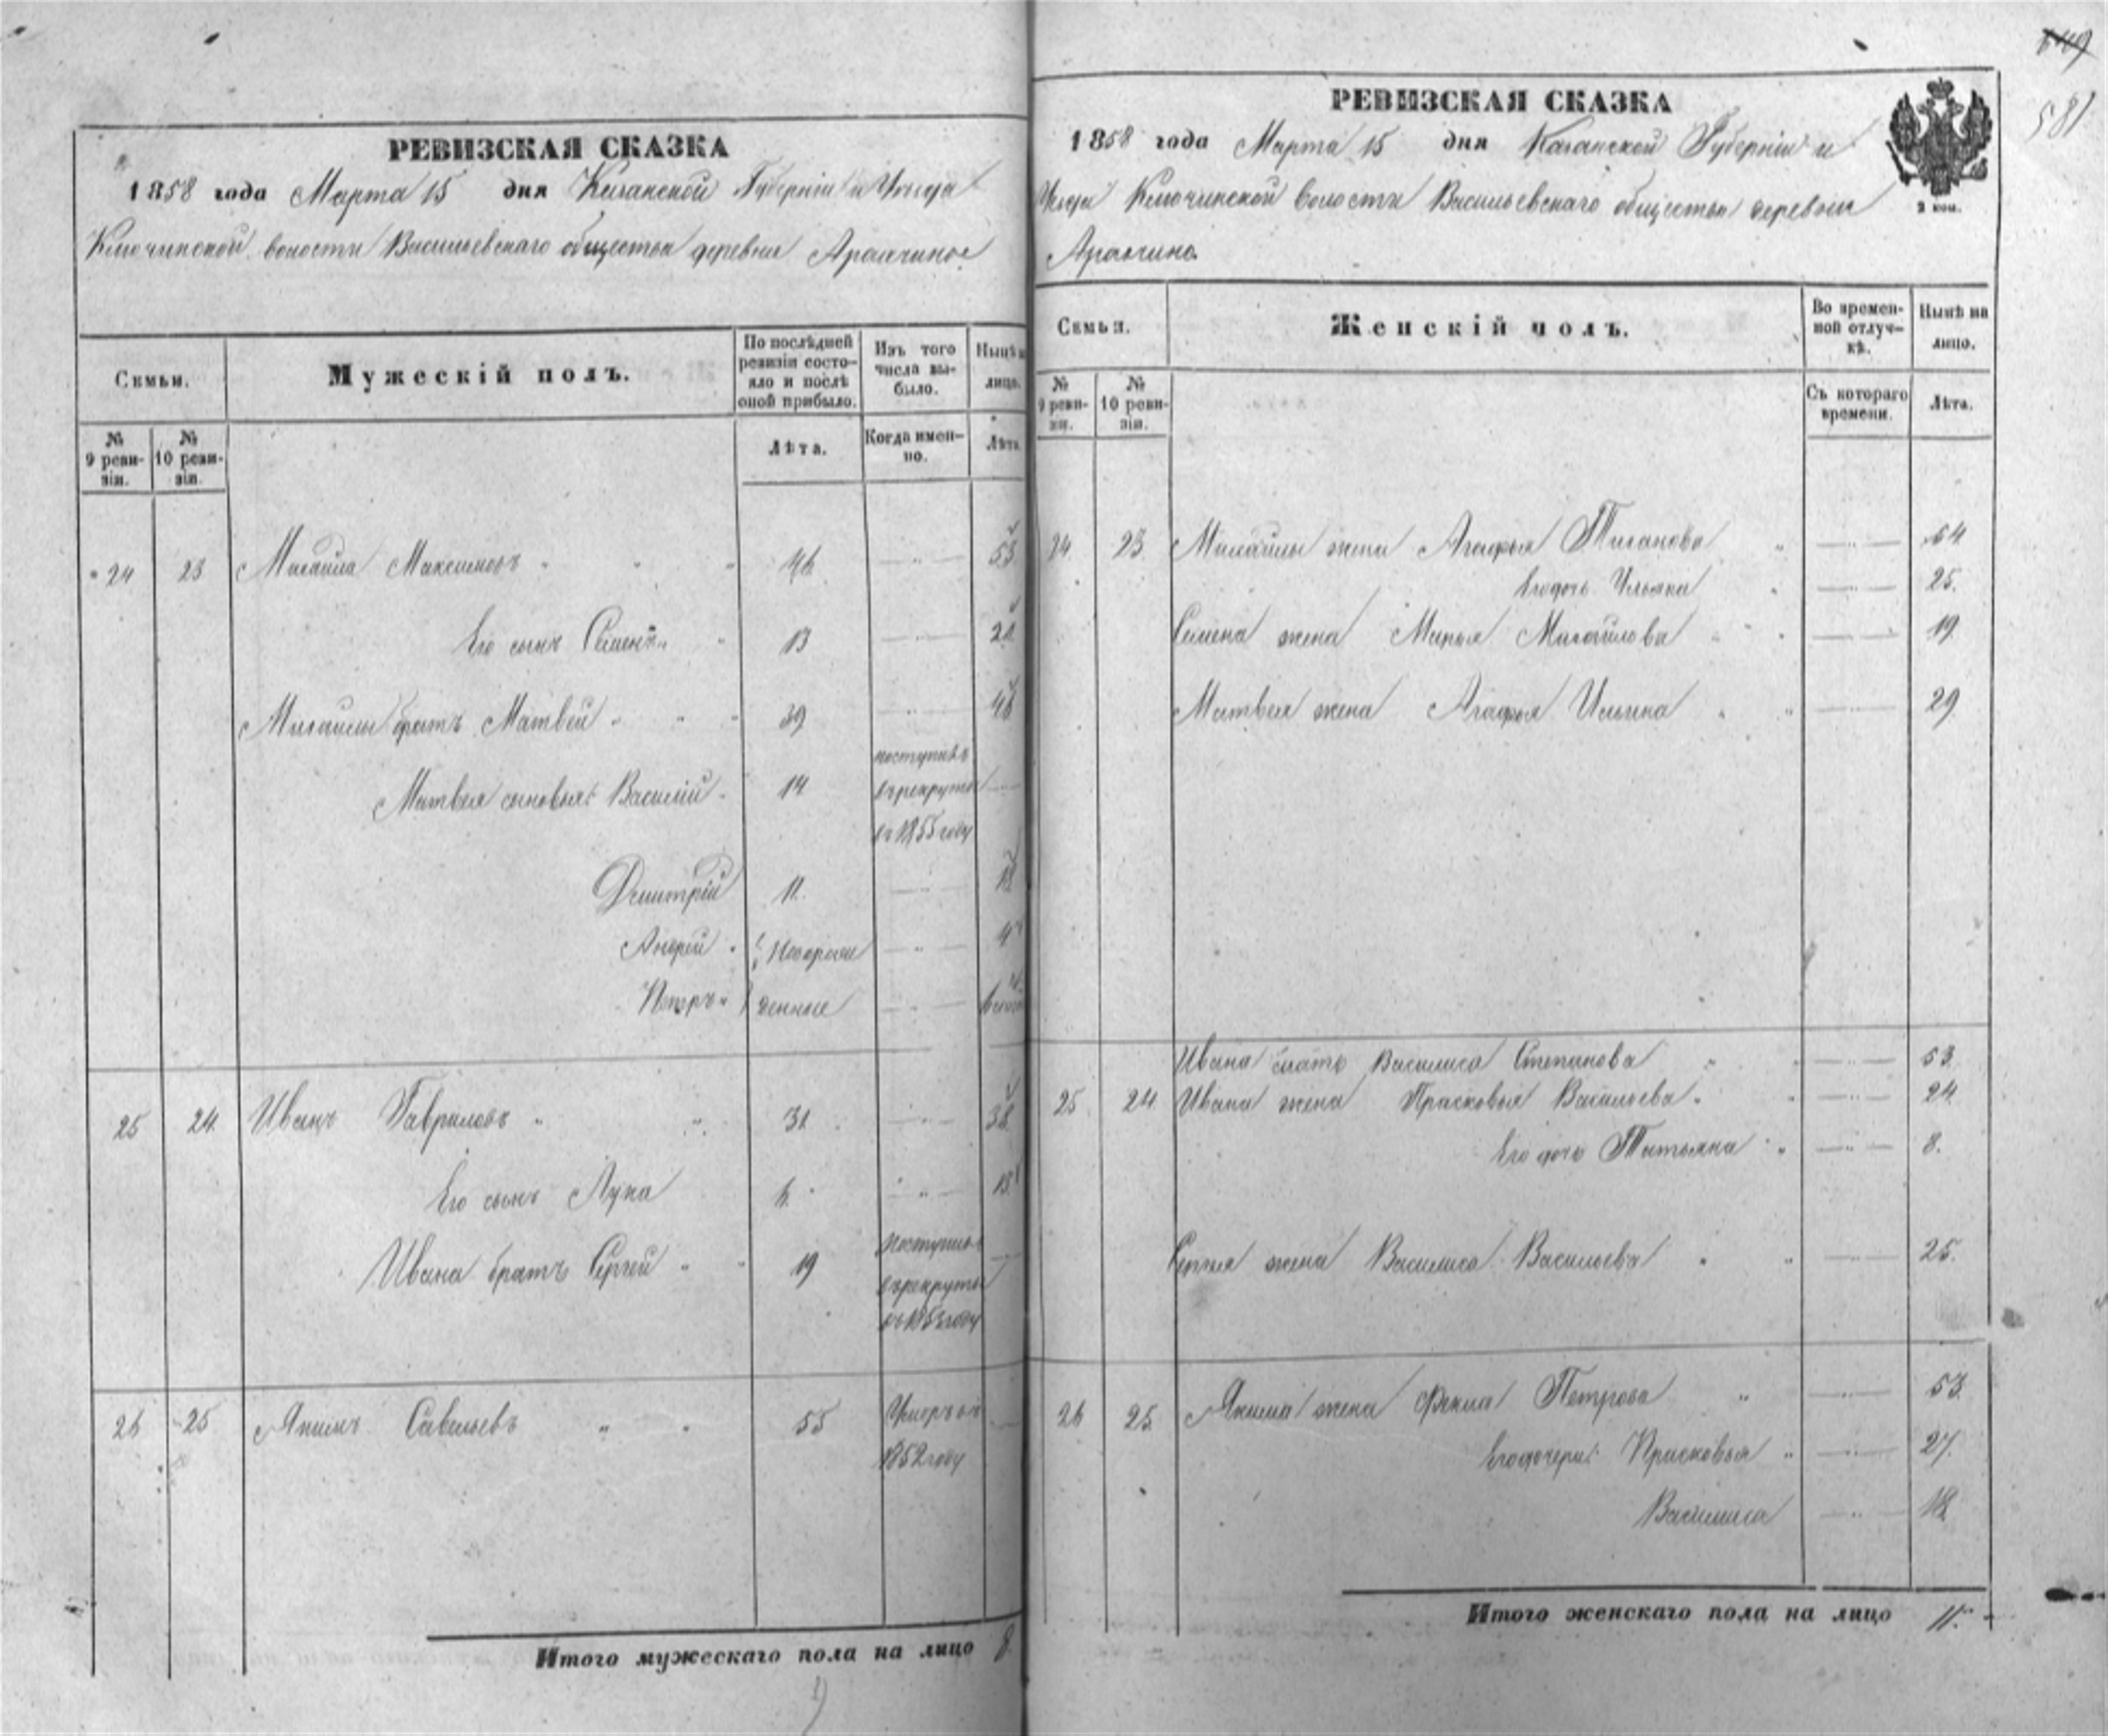 РЕВИЗСКАЯ СКАЗКА
1858 года Марта 15 дня Казанской Губернiи и Уезда
Ключинской волости Васильевскаго общества деревни Аракчино
Семьи.
Мужескiй полъ.
По послѣдней ревизiи состо-
яло и послѣ
оной прибыло.
Изъ того
числа вы-
было.
Нынѣ на
лицо.
№
9 реви-
зiи.
№
10 реви-
зiи.
Лѣта.
Когда имен-
но.
Лѣта.
24 23 Михайла Максимовъ 46 53
Его сынъ Семенъ 13 20
Михайлы братъ Матвей 39 46
Матвея сыновья: Василiй 14 поступилъ
в рекруты
въ 1855 году
Дмитрiй 11. 18
Андрей Новорож 4
Петръ денные
25 24 Иванъ Гавриловъ 31. 38.
Его сынъ Лука 6. 13
Ивана братъ Сергей 19 поступилъ
в рекруты
въ 1853 году
26 25 Якимъ Савельевъ 55 Умеръ въ
1852 году
Итого мужескаго пола на лицо 8.
649
581
РЕВИЗСКАЯ СКАЗКА
1858 года Марта 15 дня Казанской Губернiи и
Уезда Ключинской волости Васильевскаго общества деревни
Аракчино
2 коп.
Семьи.
Женскiй полъ.
Во времен-
ной отлуч-
кѣ.
Нынѣ на
лицо.
№
9 реви-
зiи.
№
10 реви-
зiи.
Съ котораго
времени.
Лѣта.
24. 23. Михайлы жена Агафья 54.
Его дочь 25.
Семена жена Марья Михайлова 19
Матвея жена Агафья Ильина 29
Ивана мать Василиса Степанова 53.
25 24. Ивана жена Прасковья Васильева 24
Его дочь Татьяна 8.
Сергея жена Василиса Васильева 25.
26 25. Якима жена Фекла Петрова 53.
Его дочери: Прасковья 27.
Василиса 18
Итого женскаго пола на лицо 11.